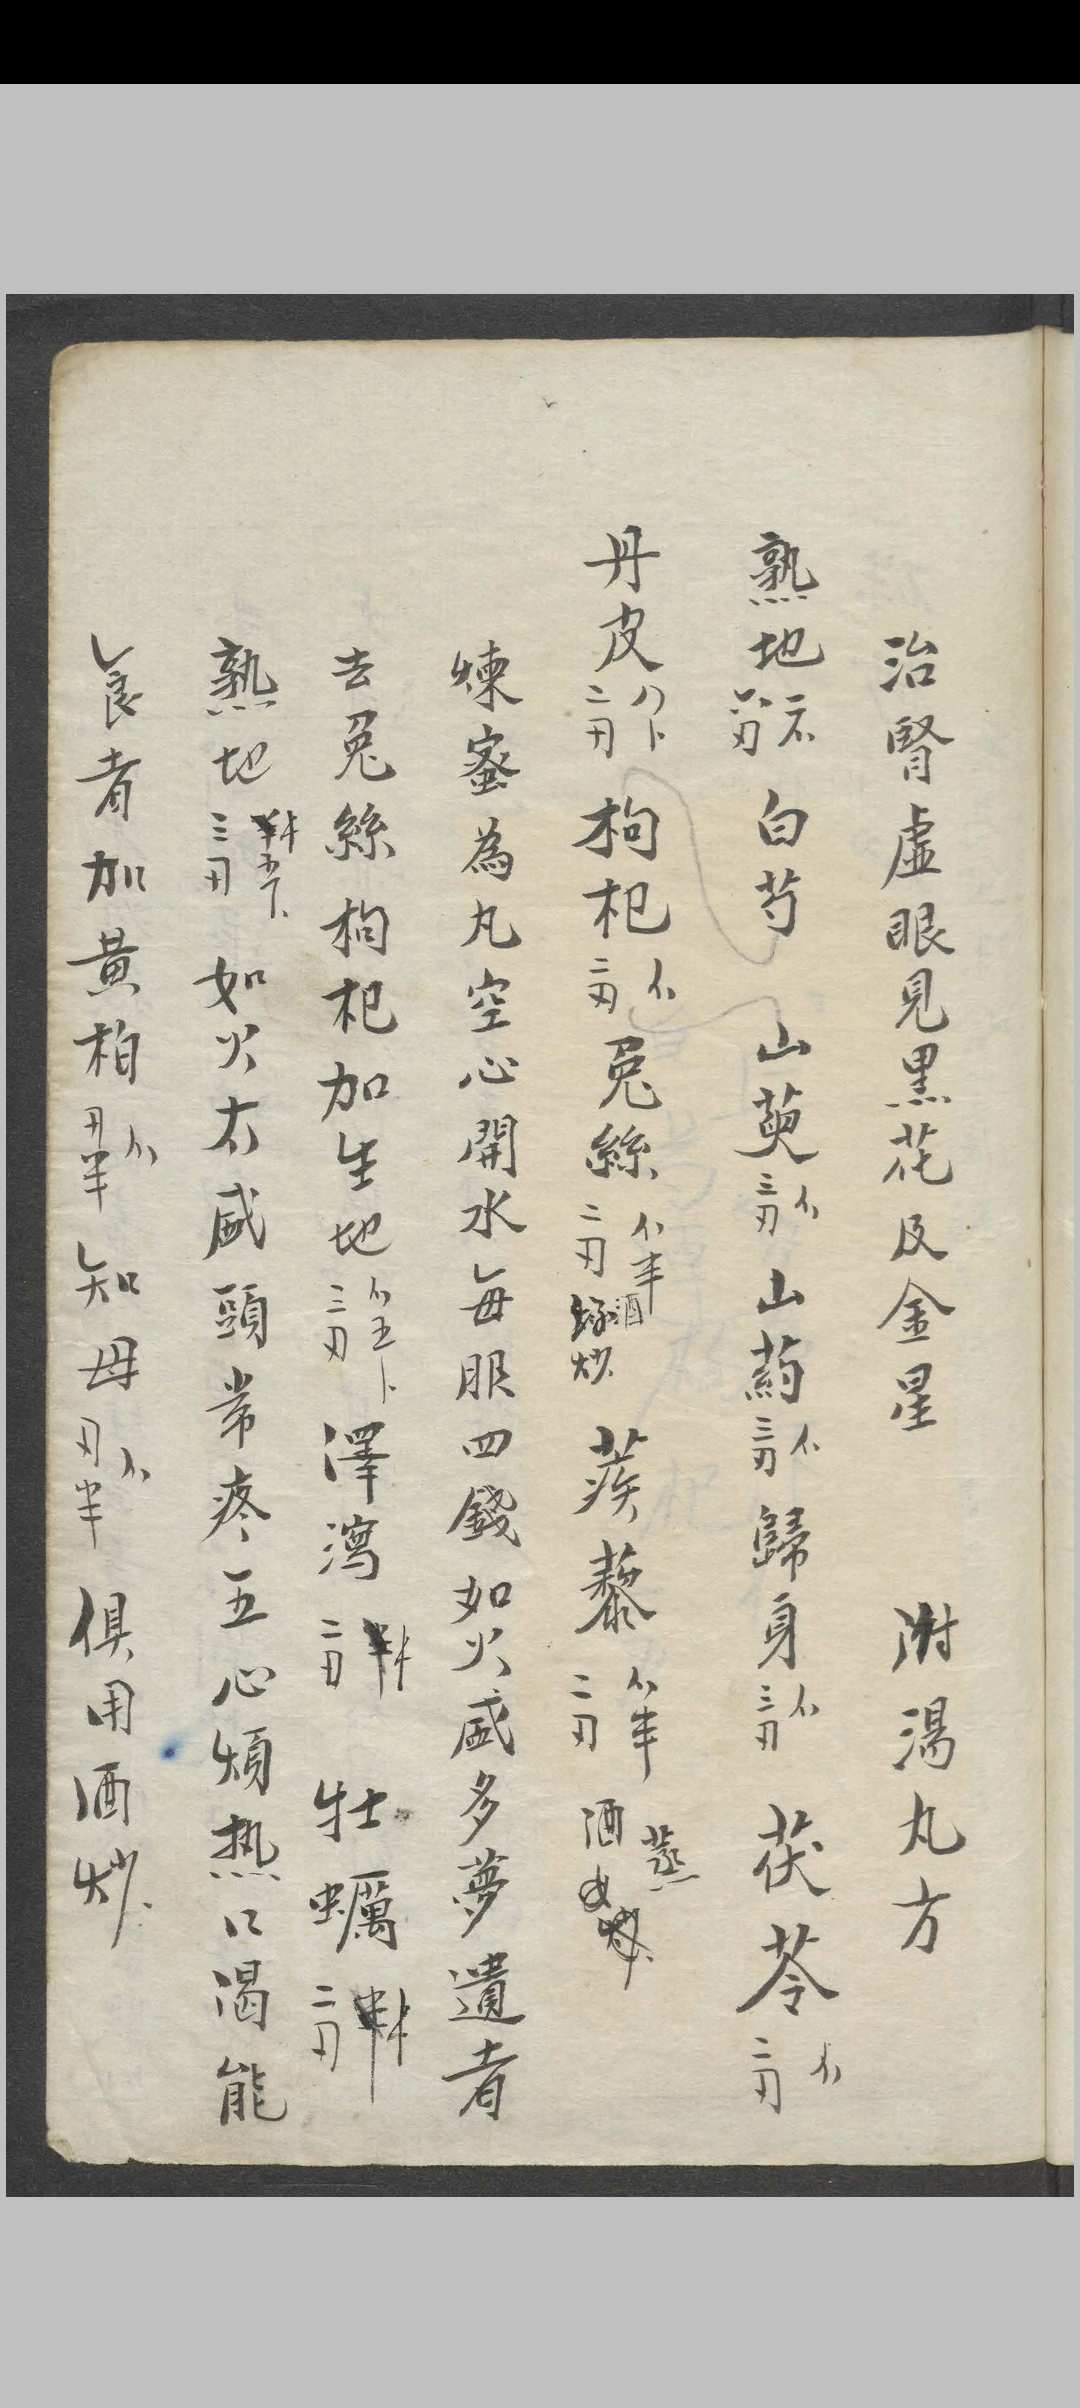 治腎虛眼見黑花及金星 附湯丸方
熟地 白芍 山萸三刃 山药三刃 歸身三刃 茯苓二刃
丹皮二刃 枸杞二刃 兎絲二刃半酒炒 蒺藜二刃半酒蒸
煉蜜為丸空心開水每服四錢如火盛多夢遺者
去兎絲枸杞加生地三刃 澤瀉二刃 牡蠣二刃
熟地三刃 如火太盛頭常疼五心煩热口渴能
食者加黄柏刃半 知母刃半 俱用酒炒